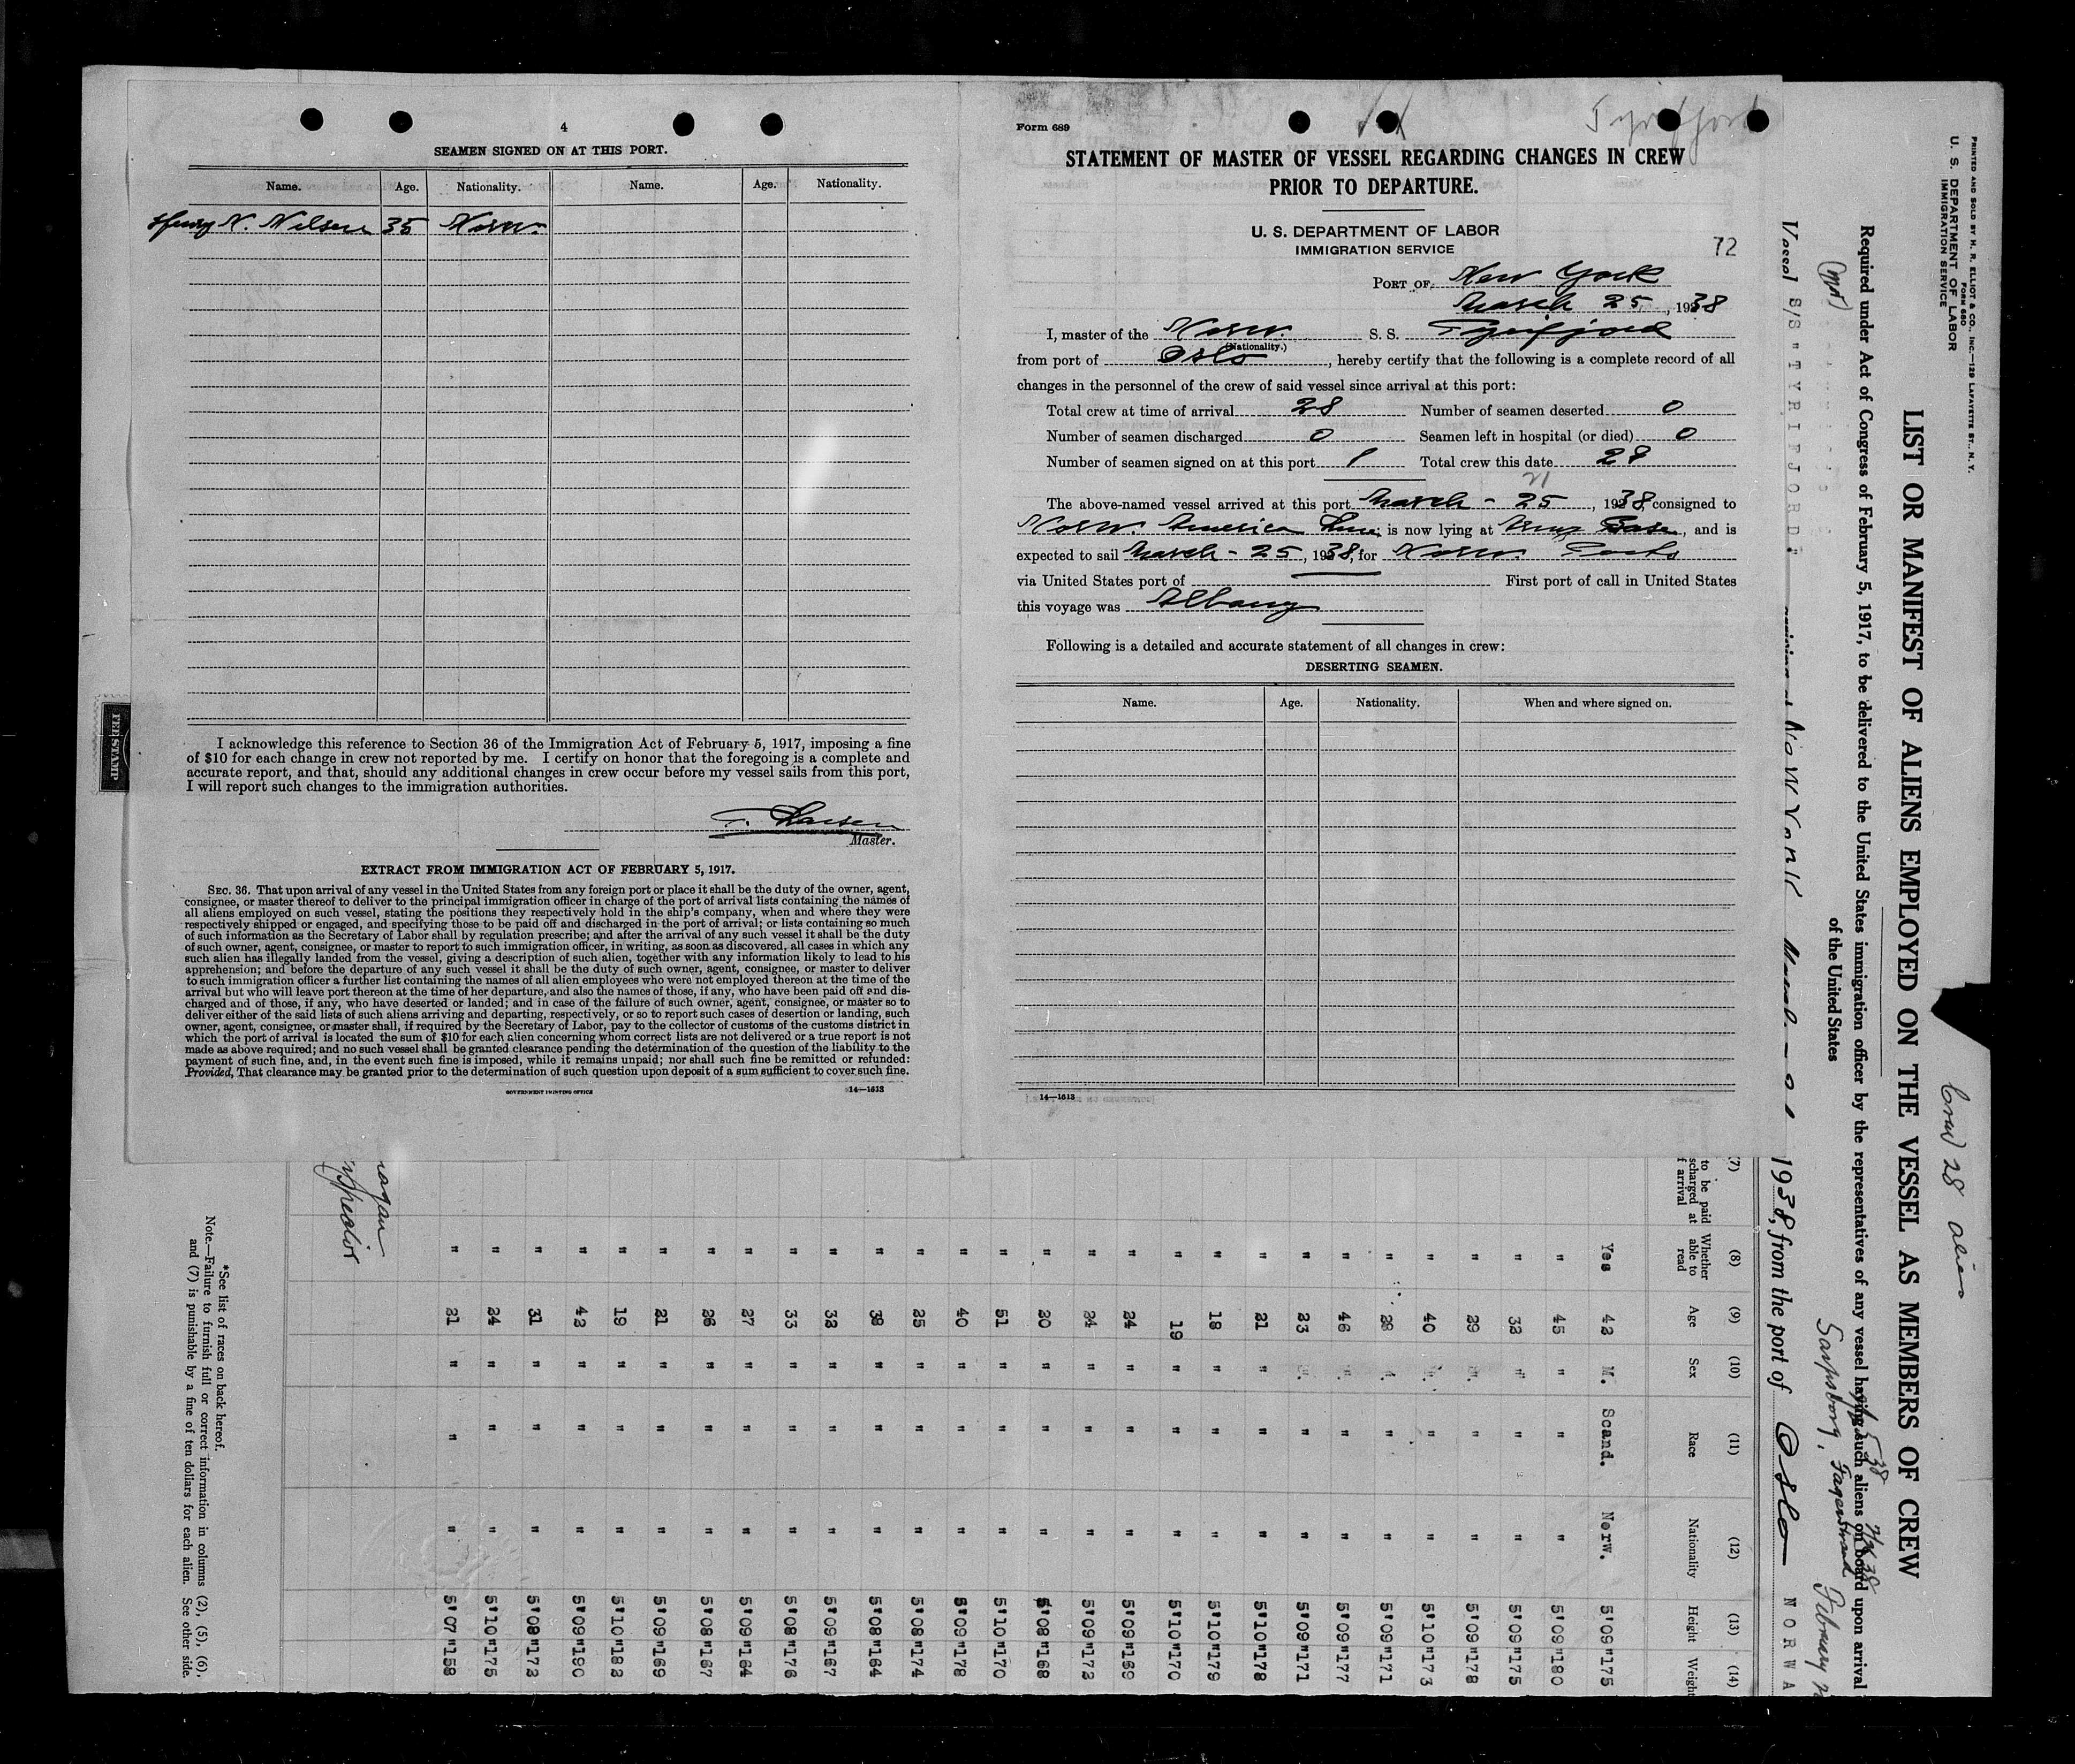 4
SEAMEN SIGNED ON AT THIS PORT.
Name. Age. Nationality. Name. Age. Nationality.
Henry N. Nilsen 35 Norw.
I acknowledge this reference to Section 36 of the Immigration Act of February 5, 1917, imposing a fine
of $10 for each change in crew not reported by me. I certify on honor that the foregoing is a complete and
accurate report, and that, should any additional changes in crew occur before my vessel sails from this port,
I will report such changes to the immigration authorities.
T. Hansen
Master.
EXTRACT FROM IMMIGRATION ACT OF FEBRUARY 5, 1917.
SEC. 36. That upon arrival of any vessel in the United States from any foreign port or place it shall be the duty of the owner, agent,
consignee, or master thereof to deliver to the principal immigration officer in charge of the port of arrival lists containing the names of
all aliens employed on such vessel, stating the positions they respectively hold in the ship's company, when and where they were
respectively shipped or engaged, and specifying those to be paid off and discharged in the port of arrival; or lists containing so much
of such information as the Secretary of Labor shall by regulation prescribe; and after the arrival of any such vessel it shall be the duty
of such owner, agent, consignee, or master to report to such immigration officer, in writing, as soon as discovered, all cases in which any
such alien has illegally landed from the vessel, giving a description of such alien, together with any information likely to lead to his
apprehension; and before the departure of any such vessel it shall be the duty of such owner, agent, consignee, or master to deliver
to such immigration officer a further list containing the names of all alien employees who were not employed thereon at the time of the
arrival but who will leave port thereon at the time of her departure, and also the names of those, if any, who have been paid off and dis-
charged and of those, if any, who have deserted or landed; and in case of the failure of such owner, agent, consignee, or master so to
deliver either of the said lists of such aliens arriving and departing, respectively, or so to report such cases of desertion or landing, such
owner, agent, consignee, or master shall, if required by the Secretary of Labor, pay to the collector of customs of the customs district in
which the port of arrival is located the sum of $10 for each alien concerning whom correct lists are not delivered or a true report is not
made as above required; and no such vessel shall be granted clearance pending the determination of the question of the liability to the
payment of such fine, and, in the event such fine is imposed, while it remains unpaid; nor shall such fine be remitted or refunded:
Provided, That clearance may be granted prior to the determination of such question upon deposit of a sum sufficient to cover such fine.
GOVERNMENT PRINTING OFFICE 14—1613
FEE STAMP
Form 689
Tyrifjord
STATEMENT OF MASTER OF VESSEL REGARDING CHANGES IN CREW
PRIOR TO DEPARTURE.
U. S. DEPARTMENT OF LABOR
IMMIGRATION SERVICE
72
PORT OF New York
March 25, 1938
I, master of the Norw. S. S. Tyrifjord
(Nationality.)
from port of Oslo, hereby certify that the following is a complete record of all
changes in the personnel of the crew of said vessel since arrival at this port:
Total crew at time of arrival 28 Number of seamen deserted 0
Number of seamen discharged 0 Seamen left in hospital (or died) 0
Number of seamen signed on at this port 1 Total crew this date 29
21
The above-named vessel arrived at this port March - 25, 1938, consigned to
Norw. America Line; is now lying at Army Base, and is
expected to sail March - 25, 1938, for Norw. Ports
via United States port of First port of call in United States
this voyage was Albany
Following is a detailed and accurate statement of all changes in crew:
DESERTING SEAMEN.
Name. Age. Nationality. When and where signed on.
14—1613
PRINTED AND SOLD BY H. R. ELLIOT & CO., INC.—129 LAFAYETTE ST., N. Y.
FORM 680
U. S. DEPARTMENT OF LABOR
IMMIGRATION SERVICE
Crew 28 alien
LIST OR MANIFEST OF ALIENS EMPLOYED ON THE VESSEL AS MEMBERS OF CREW
Required under Act of Congress of February 5, 1917, to be delivered to the United States immigration officer by the representatives of any vessel having such aliens on board upon arrival
of the United States
Sarpsborg, Fagerstrand February
Vessel S/S "TYRIFJORD" New York 1938, from the port of Oslo NORWA
(7) (8) (9) (10) (11) (12) (13) (14)
to be paid Whether Age Sex Race Nationality Height Weight
scharged at able to
f arrival read
Yes 42 M. Scand. Norw. 5'09" 175
" 45 " " " 5'09" 180
" 32 " " " 5'09" 175
" 29 " " " 5'09" 178
" 40 " " " 5'10" 173
" 28 " " " 5'09" 171
" 46 " " " 5'09" 177
" 23 " " " 5'09" 171
" 21 " " " 5'10" 178
" 18 " " " 5'10" 179
" 19 " " " 5'10" 170
" 24 " " " 5'09" 169
" 24 " " " 5'09" 172
" 20 " " " 5'08" 168
" 51 " " " 5'10" 170
" 40 " " " 5'09" 178
" 25 " " " 5'08" 174
" 39 " " " 5'08" 164
" 32 " " " 5'09" 167
" 33 " " " 5'08" 176
" 27 " " " 5'09" 164
" 26 " " " 5'08" 167
" 21 " " " 5'09" 169
" 19 " " " 5'10" 182
" 42 " " " 5'09" 190
" 31 " " " 5'08" 172
" 24 " " " 5'10" 175
" 21 " " " 5'07" 158
*See list of races on back hereof.
Note.—Failure to furnish full or correct information in columns (2), (5), (6),
and (7) is punishable by a fine of ten dollars for each alien. See other side.